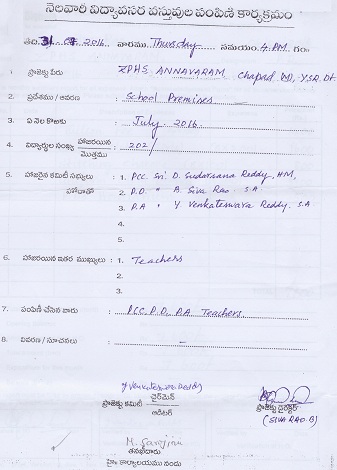 నెలవారీ విద్యావసర వస్తువుల పంపిణీ కార్యక్రమం
తేది: 31-07-2016 వారము Thursday సమయం: 4 PM గం॥
1. ప్రాజెక్టు పేరు : ZPHS ANNAVARAM, Chapad (M), YSR Dt
2. ప్రదేశము / ఆవరణ : School Premises
3. ఏ నెల కొఱకు : July 2016.
4. విద్యార్థుల సంఖ్య హాజరయిన / మొత్తము : 202/
5. హాజరైన కమిటీ సభ్యులు : 1. PCC. Sri D. Sudarsana Reddy, HM,
హోదాతో 2. P.D. " B. Siva Rao. S.A
3. P.A " Y Venkateswara Reddy. S.A
4.
5.
6. హాజరయిన ఇతర ముఖ్యులు : 1. Teachers
2.
3.
7. పంపిణీ చేసిన వారు : PCC, P.D, P.A Teachers
8. వివరణ / సూచనలు : –
Y Venkateswara Reddy
ప్రాజెక్టు కమిటీ ఛైర్మెన్ / ఆడిటర్ ప్రాజెక్టు డైరెక్టర్
(SIVA RAO. B)
M. Sarojini
తనఖీదారు
హైం కార్యాలయము నందు